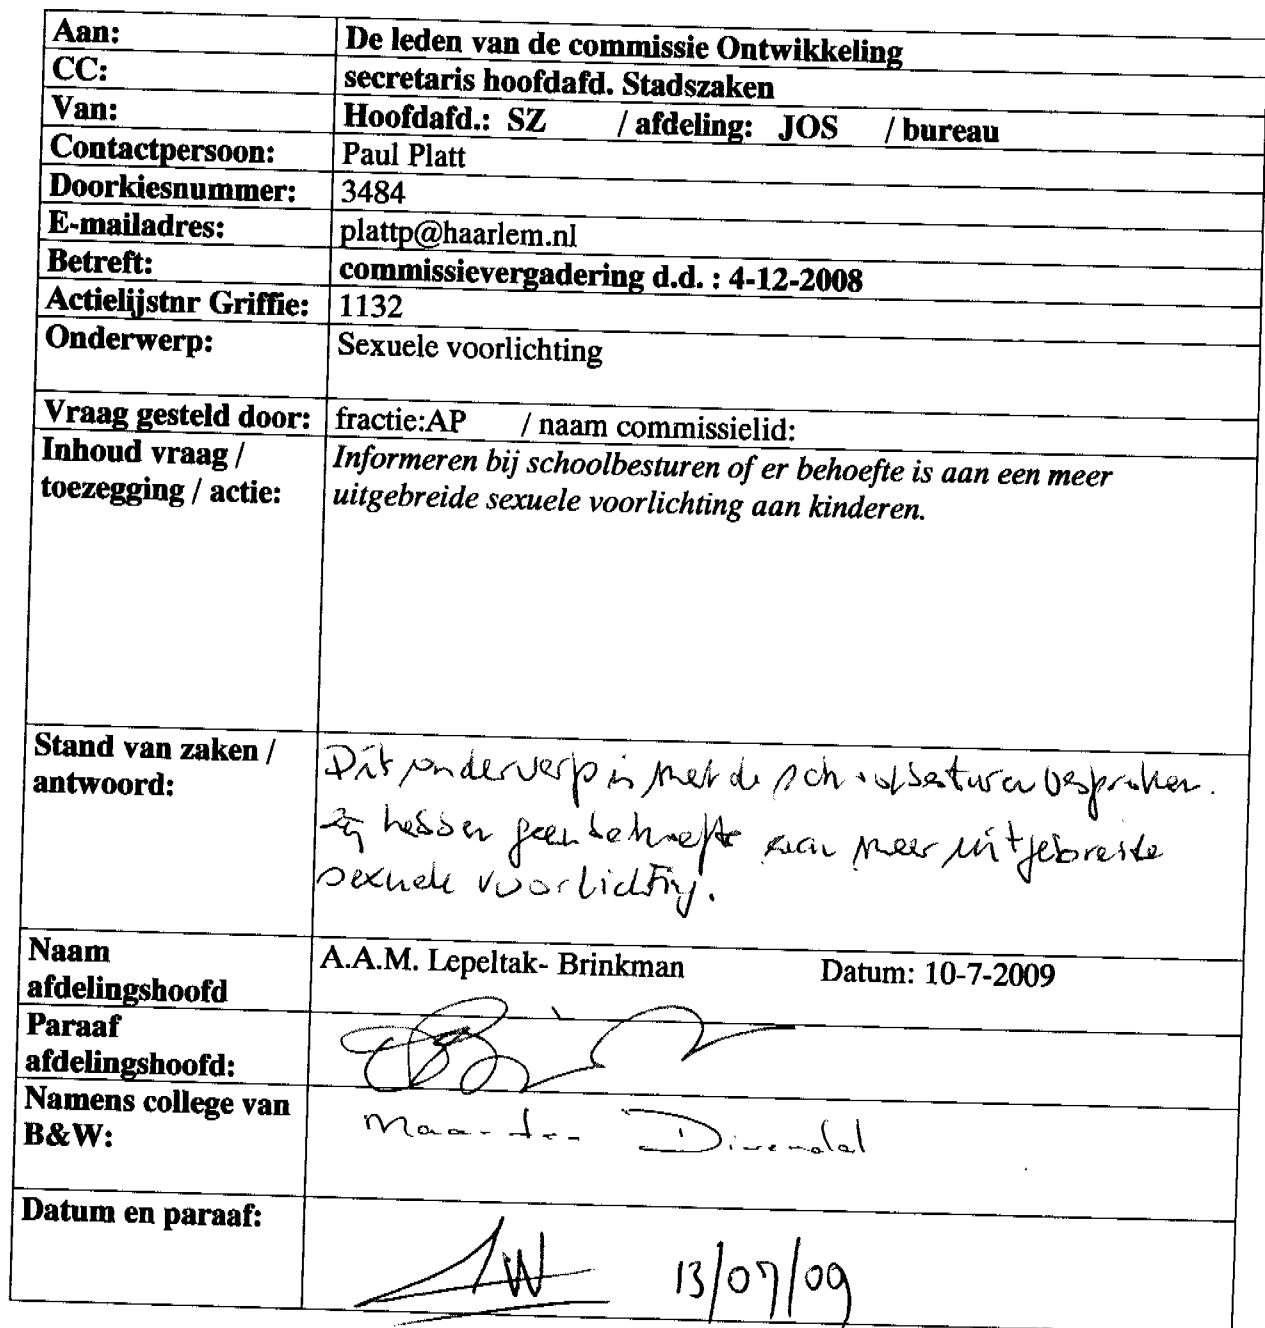 Aan: De leden van de commissie Ontwikkeling
CC: secretaris hoofdafd. Stadszaken
Van: Hoofdafd.: SZ / afdeling: JOS / bureau
Contactpersoon: Paul Platt
Doorkiesnummer: 3484
E-mailadres: plattp@haarlem.nl
Betreft: commissievergadering d.d. : 4-12-2008
Actielijstnr Griffie: 1132
Onderwerp: Sexuele voorlichting
Vraag gesteld door: fractie:AP / naam commissielid:
Inhoud vraag / Informeren bij schoolbesturen of er behoefte is aan een meer
toezegging / actie: uitgebreide sexuele voorlichting aan kinderen.
Stand van zaken / Dit onderwerp is met de schoolbesturen besproken.
antwoord: Zij hebben geen behoefte aan meer uitgebreide
sexuele voorlichting.
Naam A.A.M. Lepeltak- Brinkman Datum: 10-7-2009
afdelingshoofd
Paraaf
afdelingshoofd:
Namens college van Maarten Divendal
B&W:
Datum en paraaf:
13/07/09